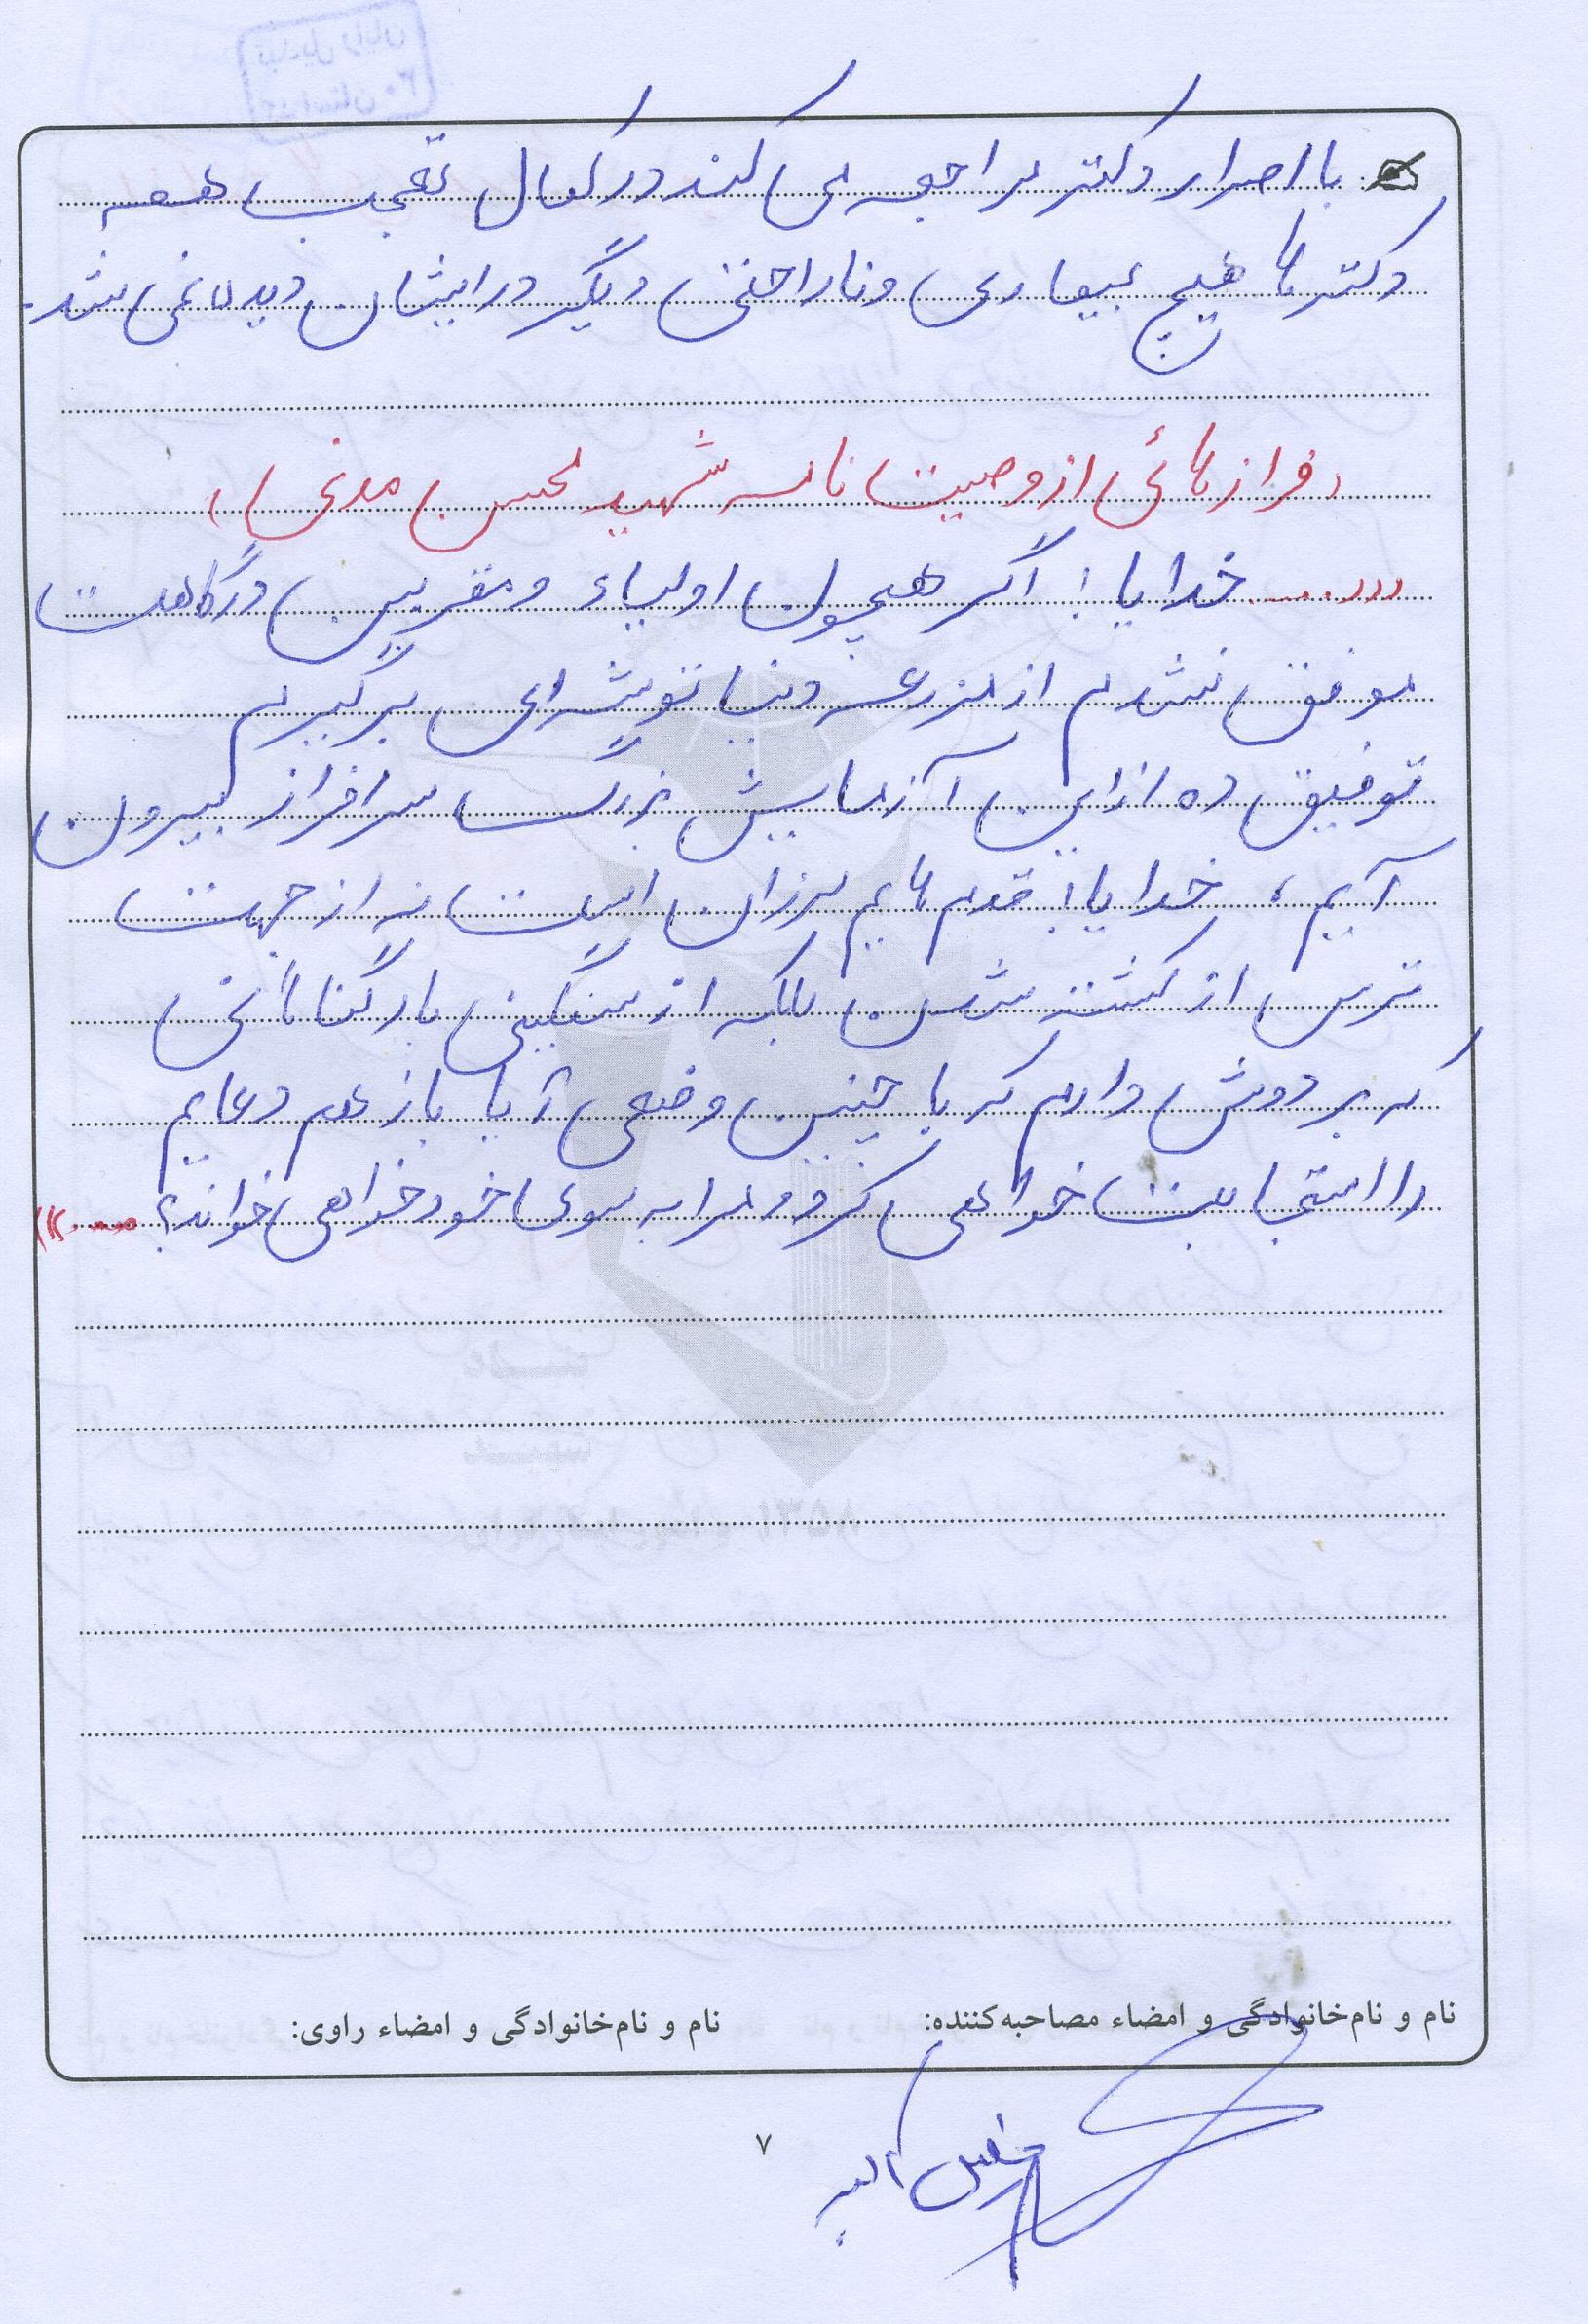 با اصرار دکتر مراجعه می کند در کمال تعجب همه
دکترها هیچ بیماری و ناراحتی دیگر در ایشان دیده نمی شد.
«فرازهائی از وصیت نامه شهید محسن مدنی»
«..... خدایا! اگر همچون اولیاء و مقربین درگاهت
موفق نشدم از مزرعه دنیا توشه ای برگیرم
توفیق ده از این آزمایش بزرگ سرافراز بیرون
آیم، خدایا! قدم هایم لرزان است نه از جهت
ترس از کشته شدن بلکه از سنگینی بار گناهانی
که بر دوش دارم که با چنین وضعی آیا باز هم دعایم
را استجابت خواهی کرد و مرا به سوی خود خواهی خواند؟ .....»
نام و نام‌خانوادگی و امضاء مصاحبه‌کننده:
نام و نام‌خانوادگی و امضاء راوی:
۷